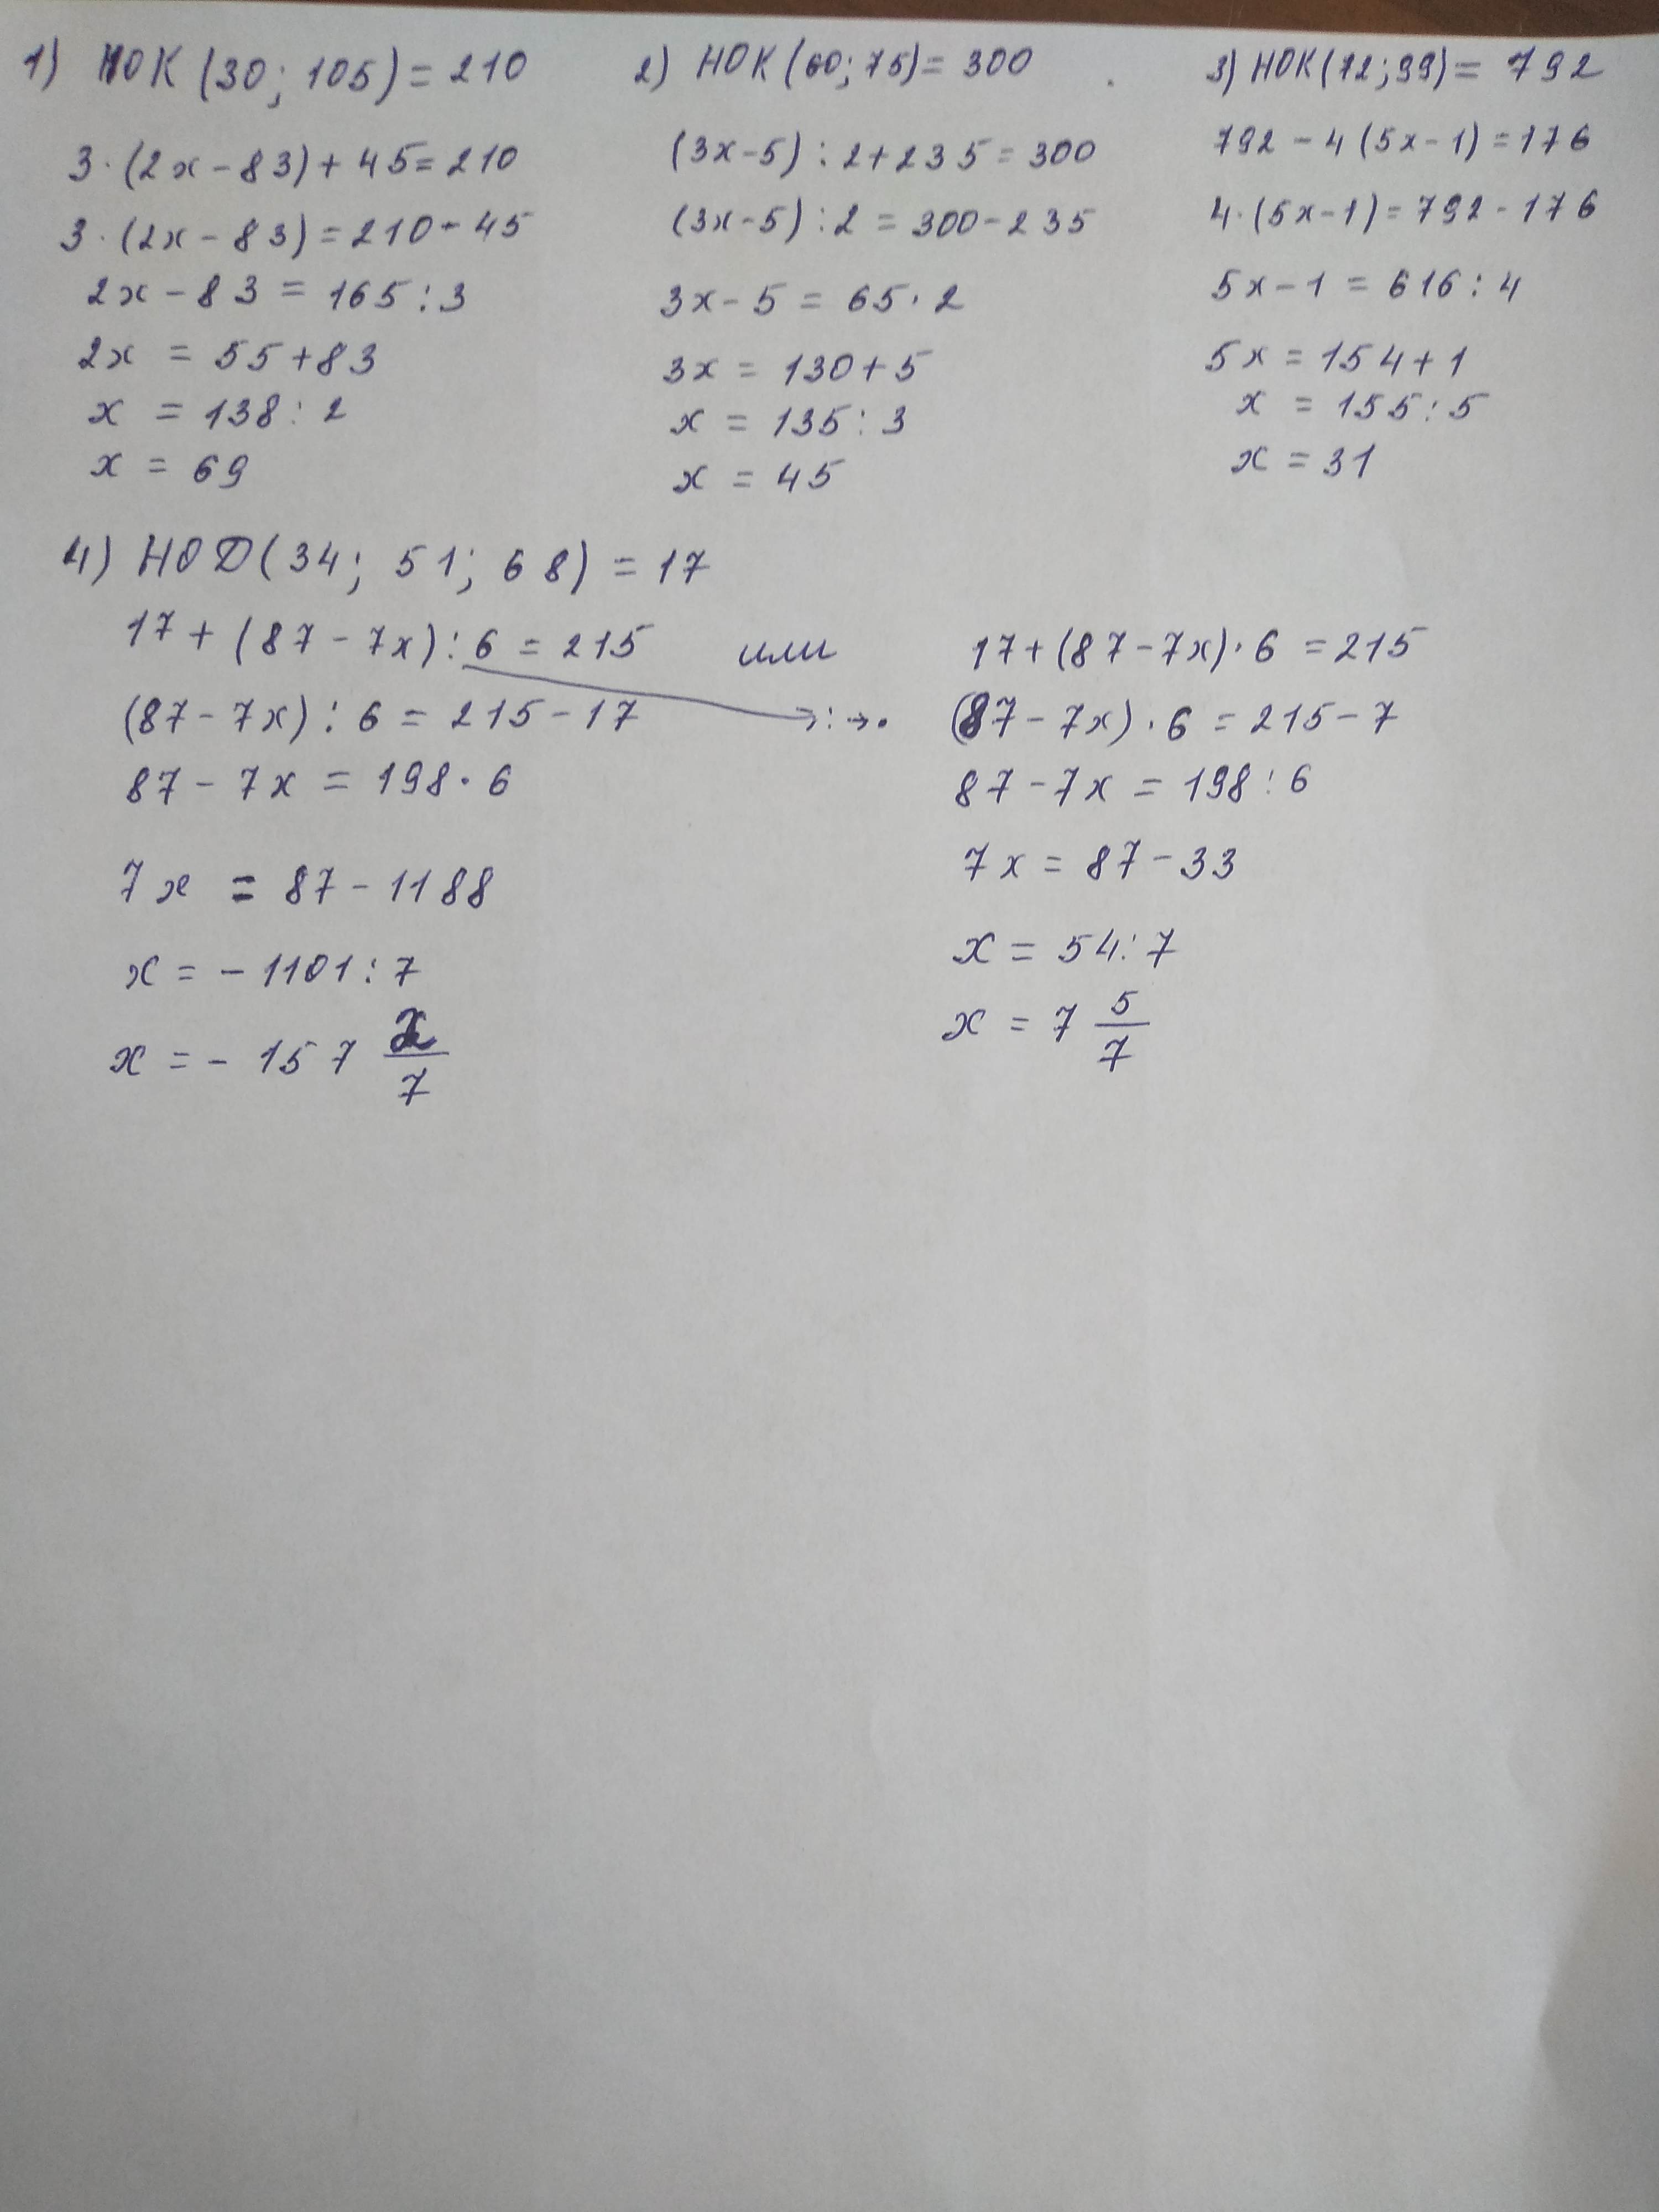 1) НОК (30; 105) = 210
3·(2x - 83) + 45 = 210
3·(2x - 83) = 210 - 45
2x - 83 = 165 : 3
2x = 55 + 83
x = 138 : 2
x = 69
2) НОК (60; 75) = 300
(3x - 5) : 2 + 235 = 300
(3x - 5) : 2 = 300 - 235
3x - 5 = 65 · 2
3x = 130 + 5
x = 135 : 3
x = 45
3) НОК (72; 99) = 792
792 - 4 (5x - 1) = 176
4·(5x - 1) = 792 - 176
5x - 1 = 616 : 4
5x = 154 + 1
x = 155 : 5
x = 31
4) НОД (34; 51; 68) = 17
17 + (87 - 7x) : 6 = 215 или
(87 - 7x) : 6 = 215 - 17 → : → ·
87 - 7x = 198 · 6
7x = 87 - 1188
x = - 1101 : 7
x = - 157 2/7
17 + (87 - 7x) · 6 = 215
(87 - 7x) · 6 = 215 - 7
87 - 7x = 198 : 6
7x = 87 - 33
x = 54 : 7
x = 7 5/7